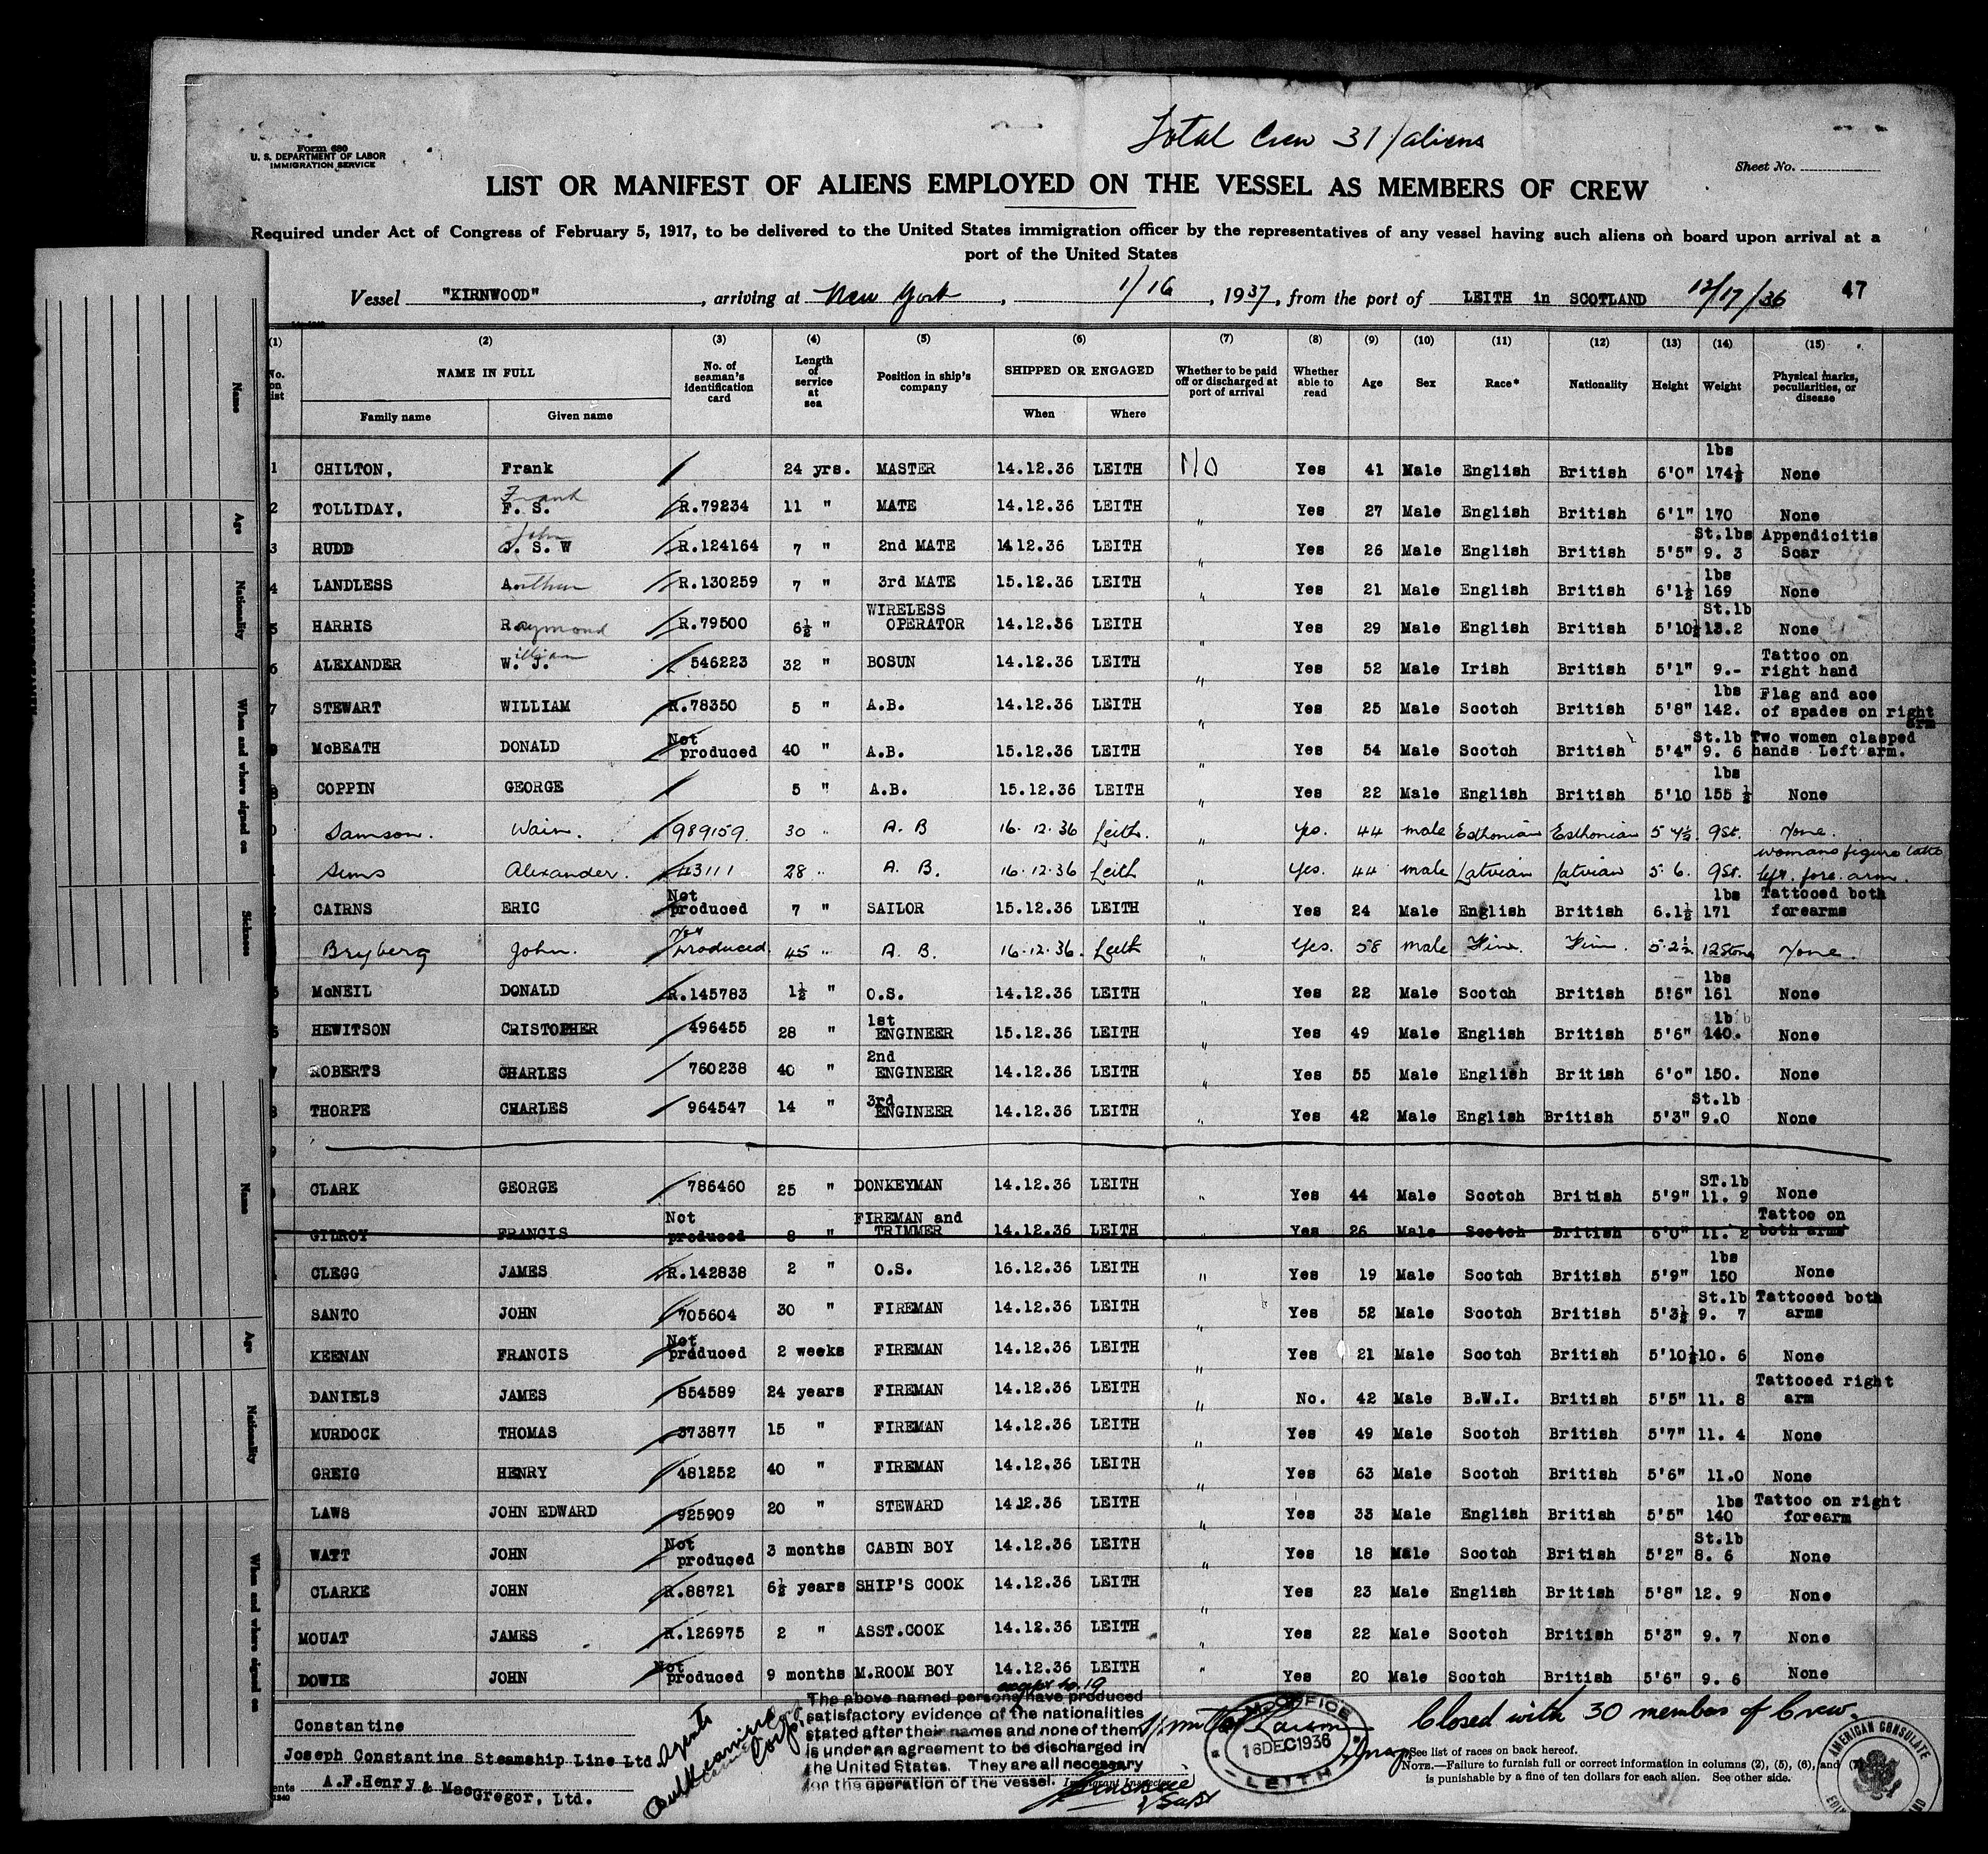 Total Crew 31 /aliens
Form 680
U. S. DEPARTMENT OF LABOR
IMMIGRATION SERVICE
Sheet No.
LIST OR MANIFEST OF ALIENS EMPLOYED ON THE VESSEL AS MEMBERS OF CREW
Required under Act of Congress of February 5, 1917, to be delivered to the United States immigration officer by the representatives of any vessel having such aliens on board upon arrival at a
port of the United States
Vessel "KIRNWOOD", arriving at New York, 1/16, 1937, from the port of LEITH in SCOTLAND 12/17/36 47
(1) (2) (3) (4) (5) (6) (7) (8) (9) (10) (11) (12) (13) (14) (15)
No. on list NAME IN FULL Family name Given name No. of seaman's identification card Length of service at sea Position in ship's company SHIPPED OR ENGAGED When Where Whether to be paid off or discharged at port of arrival Whether able to read Age Sex Race* Nationality Height Weight Physical marks, peculiarities, or disease
1 CHILTON, Frank 24 yrs. MASTER 14.12.36 LEITH No Yes 41 Male English British 6'0" lbs 174½ None
2 TOLLIDAY, Frank F. S. R.79234 11 " MATE 14.12.36 LEITH " Yes 27 Male English British 6'1" 170 None
3 RUDD John J. S. W R.124164 7 " 2nd MATE 14 12.36 LEITH " Yes 26 Male English British 5'5" St.lbs 9. 3 Appendicitis Scar
4 LANDLESS Arthur R.130259 7 " 3rd MATE 15.12.36 LEITH " Yes 21 Male English British 6'1½ lbs 169 None
5 HARRIS Raymond R.79500 6½ " WIRELESS OPERATOR 14.12.36 LEITH " Yes 29 Male English British 5'10½ St.lb 13.2 None
6 ALEXANDER William W. J. 546223 32 " BOSUN 14.12.36 LEITH " Yes 52 Male Irish British 5'1" 9.- Tattoo on right hand
7 STEWART WILLIAM R.78350 5 " A.B. 14.12.36 LEITH " Yes 25 Male Scotch British 5'8" lbs 142. Flag and ace of spades on right arm
McBEATH DONALD Not produced 40 " A.B. 15.12.36 LEITH " Yes 54 Male Scotch British 5'4" St.lb 9. 6 Two women clasped hands Left arm.
COPPIN GEORGE 5 " A.B. 15.12.36 LEITH " Yes 22 Male English British 5'10 lbs 155 ½ None
Samson. Wain. 989159. 30 " A. B 16. 12. 36 Leith. " Yes. 44 male Esthonian Esthonian 5 4½. 9st. None.
Sims Alexander. 43111 28 " A. B. 16.12.36 Leith " Yes. 44 male Latvian Latvian 5. 6. 9st. womans figure tatto left. fore. arm.
CAIRNS ERIC Not produced 7 " SAILOR 15.12.36 LEITH " Yes 24 Male English British 6.1½ lbs 171 Tattooed both forearms
Bryberg John. Not produced 45 " A. B. 16.12.36. Leith " Yes. 58 male Finn. Finn. 5.2½ 12 Stone None.
McNEIL DONALD R.145783 1½ " O.S. 14.12.36 LEITH " Yes 22 Male Scotch British 5'6" lbs 161 None
HEWITSON CRISTOPHER 496455 28 " 1st ENGINEER 15.12.36 LEITH " Yes 49 Male English British 5'6" lb 140. None
ROBERTS CHARLES 760238 40 " 2nd ENGINEER 14.12.36 LEITH " Yes 55 Male English British 6'0" 150. None
THORPE CHARLES 964547 14 " 3rd ENGINEER 14.12.36 LEITH " Yes 42 Male English British 5'3" St.lb 9.0 None
CLARK GEORGE 786460 25 " DONKEYMAN 14.12.36 LEITH " Yes 44 Male Scotch British 5'9" ST.lb 11. 9 None
GILROY FRANCIS Not produced 8 " FIREMAN and TRIMMER 14.12.36 LEITH " Yes 26 Male Scotch British 6'0" 11. 2 Tattoo on both arms
CLEGG JAMES R.142838 2 " O.S. 16.12.36 LEITH " Yes 19 Male Scotch British 5'9" lbs 150 None
SANTO JOHN 705604 30 " FIREMAN 14.12.36 LEITH " Yes 52 Male Scotch British 5'3½ St.lb 9. 7 Tattooed both arms
KEENAN FRANCIS Not produced 2 weeks FIREMAN 14.12.36 LEITH " Yes 21 Male Scotch British 5'10½ 10. 6 None
DANIELS JAMES 854589 24 years FIREMAN 14.12.36 LEITH " No. 42 Male B.W.I. British 5'5" 11. 8 Tattooed right arm
MURDOCK THOMAS 373877 15 " FIREMAN 14.12.36 LEITH " Yes 49 Male Scotch British 5'7" 11. 4 None
GREIG HENRY 481252 40 " FIREMAN 14.12.36 LEITH " Yes 63 Male Scotch British 5'6" 11.0 None
LAWS JOHN EDWARD 925909 20 " STEWARD 14 12.36 LEITH " Yes 33 Male English British 5'5" lbs 140 Tattoo on right forearm
WATT JOHN Not produced 3 months CABIN BOY 14.12.36 LEITH " Yes 18 Male Scotch British 5'2" St.lb 8. 6 None
CLARKE JOHN R.88721 6½ years SHIP'S COOK 14.12.36 LEITH " Yes 23 Male English British 5'8" 12. 9 None
MOUAT JAMES R.126975 2 " ASST.COOK 14.12.36 LEITH " Yes 22 Male Scotch British 5'3" 9. 7 None
DOWIE JOHN Not produced 9 months M.ROOM BOY 14.12.36 LEITH " Yes 20 Male Scotch British 5'6" 9. 6 None
Constantine
Joseph Constantine Steamship Line Ltd
A.F.Henry & MacGregor, Ltd.
Agents
Corp.
except no. 19
The above named persons have produced
satisfactory evidence of the nationalities
stated after their names and none of them
is under an agreement to be discharged in
the United States. They are all necessary
for the operation of the vessel.
Immigrant Inspector
OFFICE
16 DEC 1936
LEITH
Closed with 30 members of Crew.
*See list of races on back hereof.
NOTE.—Failure to furnish full or correct information in columns (2), (5), (6), and (7)
is punishable by a fine of ten dollars for each alien. See other side.
AMERICAN CONSULATE
Name
Age
Nationality
When and where signed on
Sickness
Name
Age
Nationality
When and where signed on